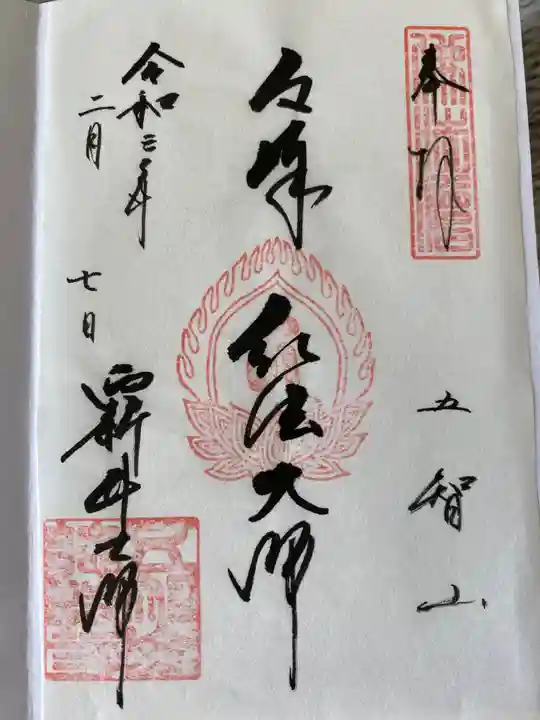 奉拝
五智山
厄除
弘法大師
令和三年
二月
七日
西新井大師